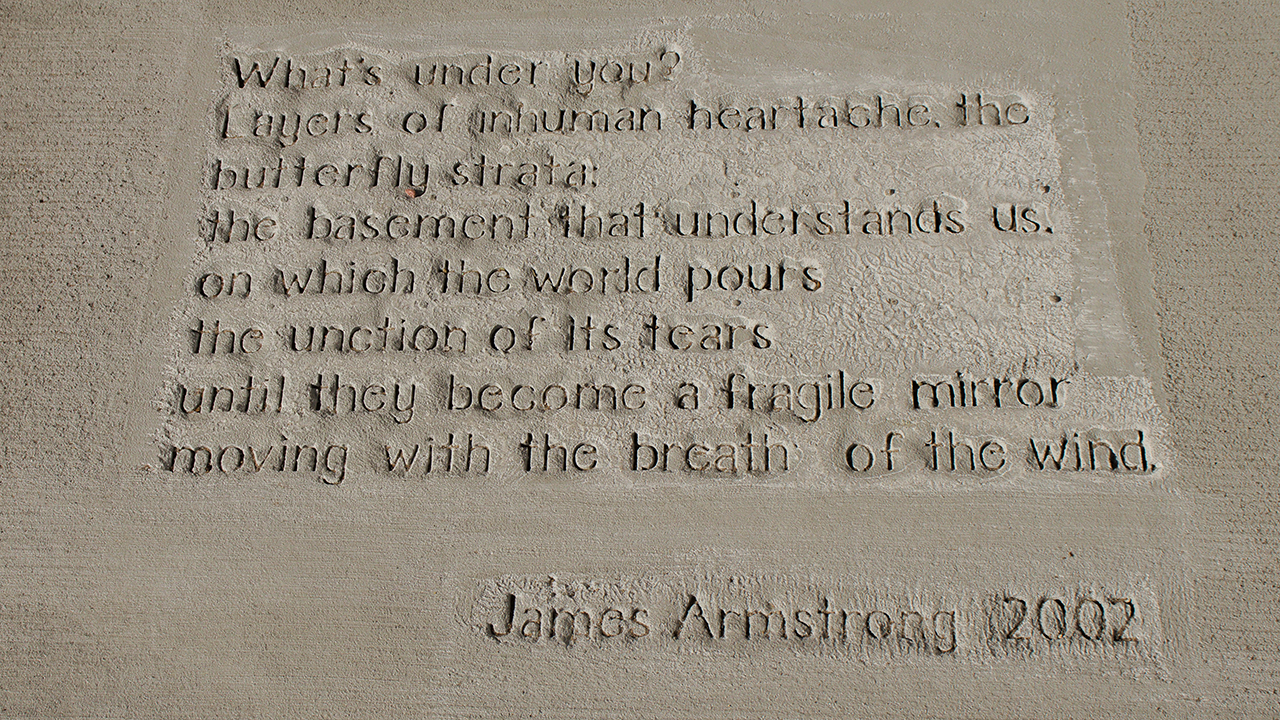 What's under you?
Layers of inhuman heartache, the
butterfly strata;
the basement that understands us,
on which the world pours
the unction of its tears
until they become a fragile mirror
moving with the breath of the wind.
James Armstrong 2002